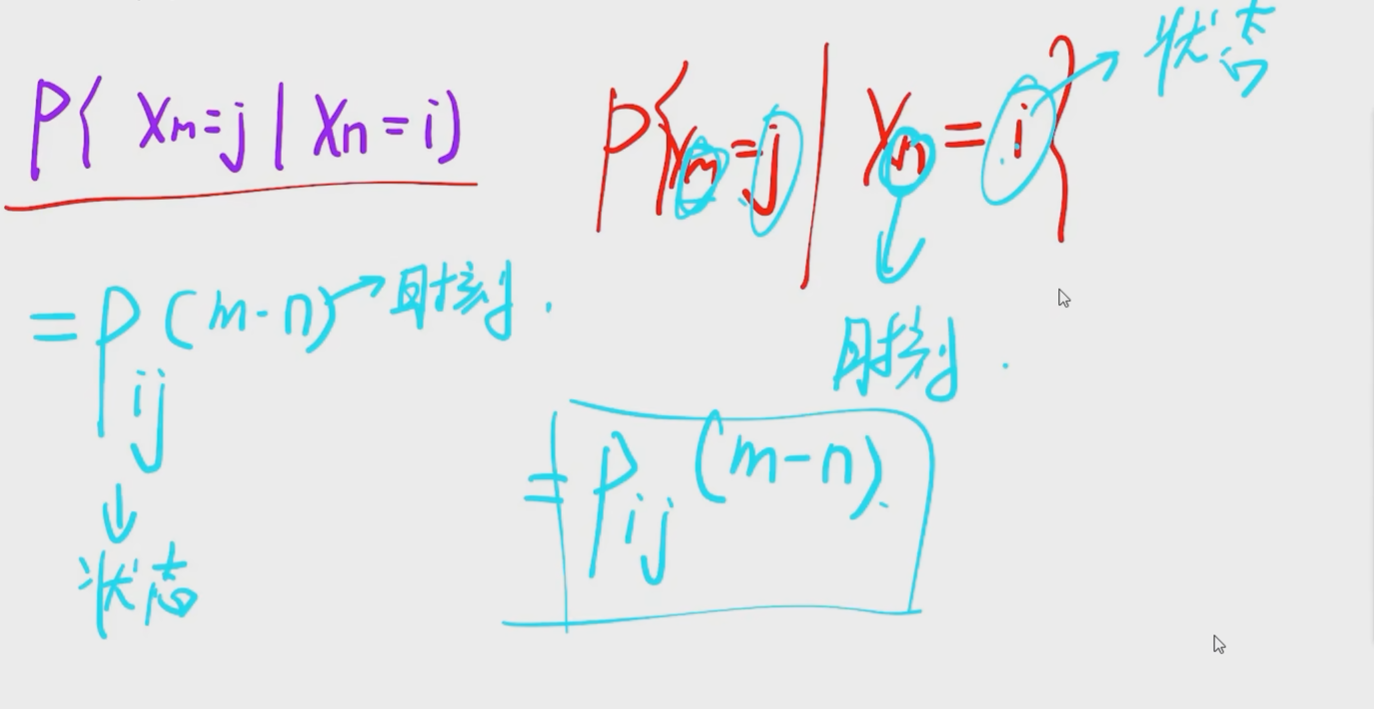 P{ Xm=j | Xn=i)
= Pij(m-n) → 时刻.
↓
状态
P{Xm=j | Xn=i} → 状态
↓
时刻.
= Pij(m-n).